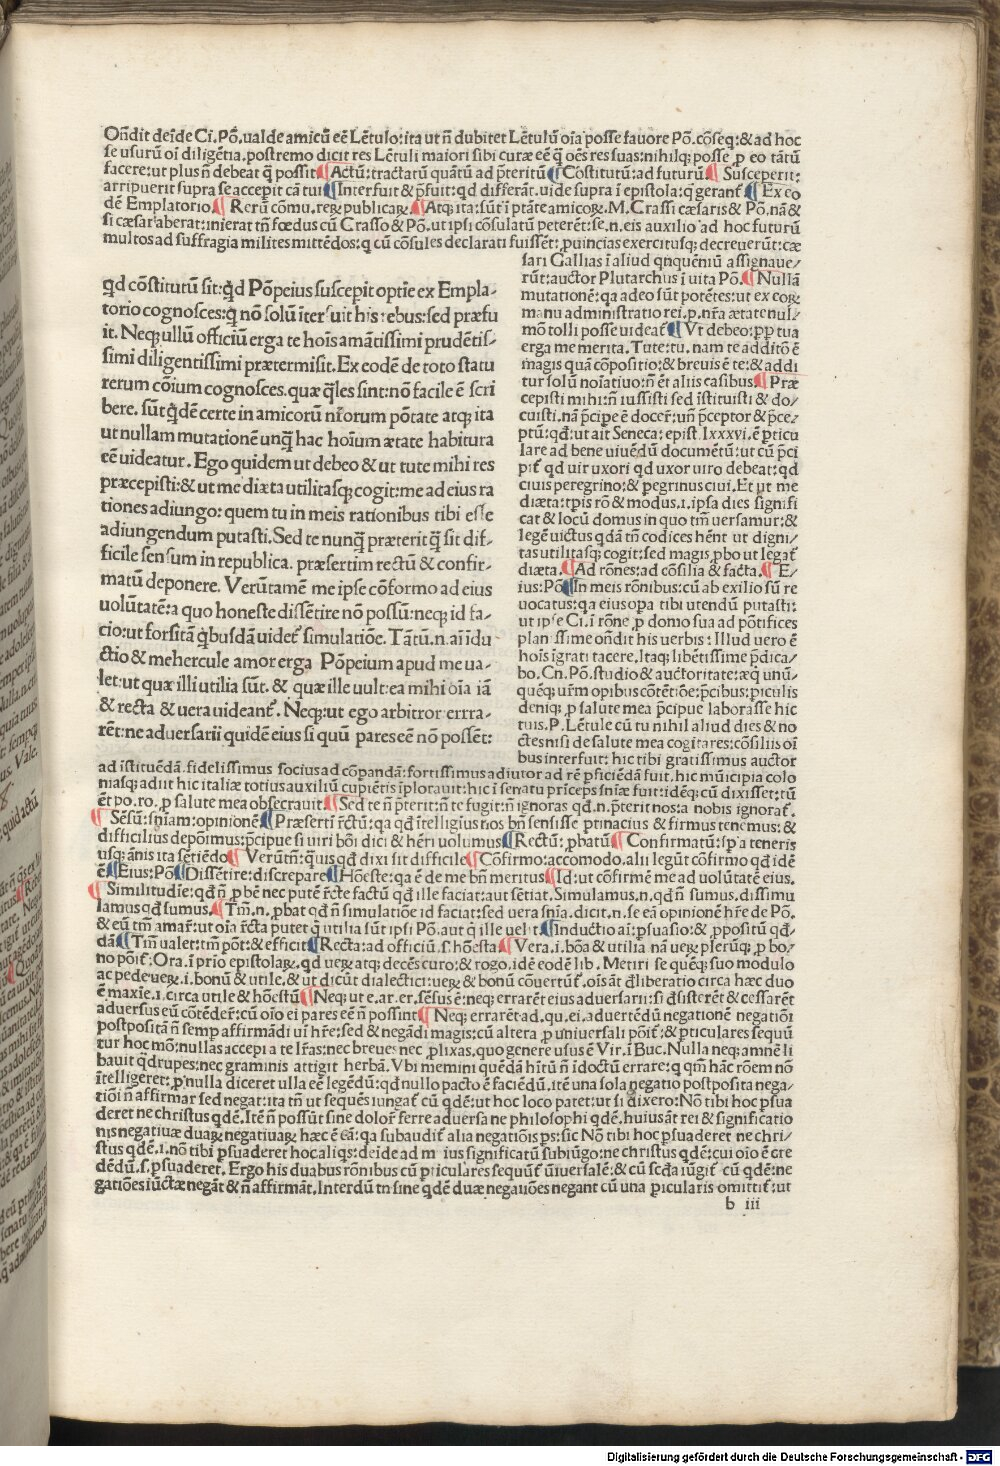 Oñdit deĩde Ci. Põ. ualde amicũ eẽ Lẽtulo: ita ut ñ dubitet Lẽtulũ oĩa posse fauore Põ. cõseq: & ad hoc
se usurũ oĩ diligẽtia. postremo dicit res Lẽtuli maiori sibi curæ eẽ q̃ oẽs res suas: nihilq; posse ꝑ eo tãtũ
facere: ut plus ñ debeat q̃ possit ¶ Actũ: tractatũ quãtũ ad p̃teritũ ¶ Cõstitutũ: ad futurũ ¶ Susceperit:
arripuerit supra se accepit cã tui ¶ Interfuit & p̃fuit: qd differãt. uide supra ĩ epistola: q̃ gerant̃ ¶ Ex eo
dẽ Emplatorio ¶ Rerũ cõmu. reꝝ publicaꝝ ¶ Atq; ita: sũt ĩ ptãte amicoꝝ. M. Crassi cæsaris & Põ. nã &
si cæsar aberat: inierat tñ fœdus cũ Crasso & Põ. ut ipsi cõsulatũ peterẽt: se. n. eis auxilio ad hoc futurũ
multos ad suffragia milites mittẽdos: q cũ cõsules declarati fuissẽt: ꝓuincias exercitusq; decreuerũt: cæ
sari Gallias ĩ aliud qnquẽniũ assignaue/
rũt: auctor Plutarchus ĩ uita Põ. ¶ Nullã
mutationẽ: qa adeo sũt potẽtes: ut ex eoꝝ
manu administratio rei. p. nr̃a ætate nul/
mõ tolli posse uideat̃ ¶ Vt debeo: ꝑp tua
erga me merita. Tute: tu. nam te additõ ẽ
magis quã cõpositio: & breuis ẽ te: & addi
tur solũ noĩatiuo: ñ ẽt aliis casibus ¶ Præ
cepisti mihi: ñ iussisti sed ĩstituisti & do/
cuisti. nã p̃cipe ẽ docer̃: uñ p̃ceptor & p̃ce/
ptũ: qd̃: ut ait Seneca: epist lxxxvi. ẽ ꝑticu
lare ad bene uiuẽdũ documẽtũ: ut cũ p̃ci
pit̃ qd uir uxori qd uxor uiro debeat: qd
ciuis peregrino: & ꝑegrinus ciui. Et ut me
diæta: tp̃is rõ & modus. i. ipsa dies signifi
cat & locũ domus in quo tm̃ uersamur: &
legẽ uictus qdã tñ codices hẽnt ut digni/
tas utilitasq; cogit: sed magis ꝓbo ut legat̃
diæta. ¶ Ad rõnes: ad cõsilia & facta. ¶ E/
ius: Põ ¶ In meis rõnibus: cũ ab exilio sũ re
uocatus: qa eius opa tibi utendũ putasti:
ut ipse Ci. ĩ rõne ꝓ domo sua ad põtifices
plan ssime oñdit his uerbis: Illud uero ẽ
hoĩs ĩgrati tacere. Itaq; libẽtissime p̃dica/
bo. Cn. Põ. studio & auctoritate: æq̃ unũ/
quẽq; ur̃m opibus cõtẽtiõe: p̃cibus: ꝑiculis
deniq; ꝓ salute mea p̃cipue laborasse hic
tuis. P. Lẽtule cũ tu nihil aliud dies & no
ctes nisi de salute mea cogitares: cõsiliis oĩ
bus interfuit: hic tibi gratissimus auctor
qd cõstitutũ sit: q̃d Põpeius susceꝑit optĩe ex Empla-
torio cognosces: q̃ nõ solũ ĩterfuit his rebus: sed præfu
it. Neq; ullũ officiũ erga te hoĩs amãtissimi prudẽtis-
simi diligentissimi prætermisit. Ex eodẽ de toto statu
rerum cõium cognosces. quæ q̃les sint: nõ facile ẽ scri
bere. sũt q̃dẽ certe in amicorũ nr̃orum põtate atq; ita
ut nullam mutationẽ unq̃ hac hoĩum ætate habitura
eẽ uideatur. Ego quidem ut debeo & ut tute mihi res
præcepisti: & ut me diæta utilitasq; cogit: me ad eius ra
tiones adiungo: quem tu in meis rationibus tibi esse
adiungendum putasti. Sed te nunq̃ præterit q̃ sit dif-
ficile sensum in republica. præsertim rectũ & confir-
matũ deponere. Verũtamẽ me ipse cõformo ad eius
uolũtatẽ: a quo honeste dissẽtire nõ possũ: neq; id fa-
cio: ut forsitã q̃busdã uidet̃ simulatiõe. Tãtũ. n. aĩ ĩdu
ctio & mehercule amor erga Põpeium apud me ua-
let: ut quæ illi utilia sũt. & quæ ille uult: ea mihi oĩa iã
& recta & uera uideant̃. Neq; ut ego arbitror errra-
rẽt: ne aduersarii quidẽ eius si quũ pares eẽ nõ possẽt:
ad ĩstituẽdã. fidelissimus socius ad cõpandã: fortissimus adiutor ad rẽ ꝑficiẽdã fuit. hic mũicipia colo
niasq; adiit hic italiæ totius auxiliũ cupiẽtis ĩplorauit: hic ĩ senatu prĩceps sñiæ fuit: idẽq; cũ dixisset: tũ
ẽt po. ro. ꝓ salute mea obsecrauit ¶ Sed te ñ p̃terit: ñ te fugit: ñ ignoras qd. n. p̃terit nos: a nobis ignorat̃.
¶ Sẽsũ: sñiam: opinionẽ ¶ Præserti r̃ctũ: qa qd̃ ĩtelligĩus nos bñ sensisse ꝑtinacius & firmus tenemus: &
difficilius depoĩmus: p̃cipue si uiri boĩ dici & hẽri uolumus ¶ Rectũ: ꝓbatũ ¶ Confirmatũ: sp̃ a teneris
usq; ãnis ita sẽtiẽdo ¶ Verũtm̃: q̃uis qd̃ dixi sit difficile ¶ Cõfirmo: accomodo. alii legũt cõfirmo qd̃ idẽ
ẽ ¶ Eius: Põ ¶ Dissẽtire: discrepare ¶ Hõeste: qa ẽ de me bñ meritus ¶ Id: ut confirmẽ me ad uolũtatẽ eius.
¶ Similitudĩe: qd̃ ñ ꝓ bẽ nec putẽ r̃cte factũ qd̃ ille faciat: aut sẽtiat. Simulamus. n. qd̃ ñ sumus. dissimu
lamus qd̃ sumus. ¶ Tm̃. n. ꝓbat qd̃ ñ simulatiõe id faciat: sed uera sñia. dicit. n. se eã opinionẽ hr̃e de Põ.
& eũ tm̃ amar̃: ut oĩa r̃cta putet q̃ utilia sũt ipsi Põ. aut q̃ ille uelit ¶ Inductio aĩ: ꝑsuasio: & ꝓpositũ qd̃
dã ¶ Tm̃ ualet: tm̃ põt: & efficit ¶ Recta: ad officiũ. s. hõesta ¶ Vera. i. bõa & utilia nã ueꝝ plerũq; ꝓ bo/
no põit̃: Ora. ĩ prĩo epistolaꝝ. qd ueꝝ atq; decẽs curo: & rogo. idẽ eodẽ lib. Metiri se quẽq; suo modulo
ac pede ueꝝ. i. bonũ & utile. & ut dicũt dialectici: ueꝝ & bonũ cõuertũt̃. oĩs añt d̃liberatio circa hæc duo
ẽ maxĩe. i. circa utile & hõestũ ¶ Neq; ut e. ar. er. sẽsus ẽ: neq; errarẽt eius aduersarii: si d̃sisterẽt & cessarẽt
aduersus eũ cõtẽder̃: cũ oĩo ei pares eẽ ñ possint ¶ Neq; errarẽt ad. qu. ei. aduertẽdũ negationẽ negatiõi
postpositã ñ semp affirmãdi uĩ hr̃e: sed & negãdi magis: cũ altera ꝓ uniuersali põit̃: & ꝑticulares sequũ
tur hoc mõ: nullas accepi a te lr̃as: nec breues nec ꝓlixas. quo genere usus ẽ Vir. ĩ Buc. Nulla neq; amnẽ li
bauit q̃drupes: nec graminis attigit herbã. Vbi memini quẽdã hĩtũ ñ ĩdoctũ errare: q qm̃ hãc rõem nõ
ĩtelligeret: ꝓ nulla diceret ulla eẽ legẽdũ: qd̃ nullo pacto ẽ faciẽdũ. itẽ una sola negatio postposita nega/
tiõi ñ affirmar sed negat: ita tm̃ ut sequẽs iungat̃ cũ q̃dẽ: ut hoc loco patet: ut si dixero: Nõ tibi hoc ꝑsua
deret ne christus q̃dẽ. Itẽ ñ possũt sine dolor̃ ferre aduersa ne philosophi q̃dẽ. huiusãt rei & significatio
nis negatiuæ duaꝝ negatiuaꝝ hæc ẽ cã: qa subaudit̃ alia negatiõis ꝑs: sic Nõ tibi hoc ꝑsuaderet ne chri/
stus q̃dẽ. i. nõ tibi ꝑsuaderet hoc aliqs: deide ad m ius significatũ subiũgo: ne christus q̃dẽ: cui oĩo ẽ cre
dẽdũ. s. ꝑsuaderet. Ergo his duabus rõnibus cũ ꝑticulares sequũt̃ ũiuersalẽ: & cũ scd̃a iũgit̃ cũ q̃dẽ: ne
gatiões iũctæ negãt & ñ affirmãt. Interdũ tñ sine q̃dẽ duæ negatiões negant cũ una ꝑicularis omittit̃: ut
b iii
Digitalisierung gefördert durch die Deutsche Forschungsgemeinschaft - DFG